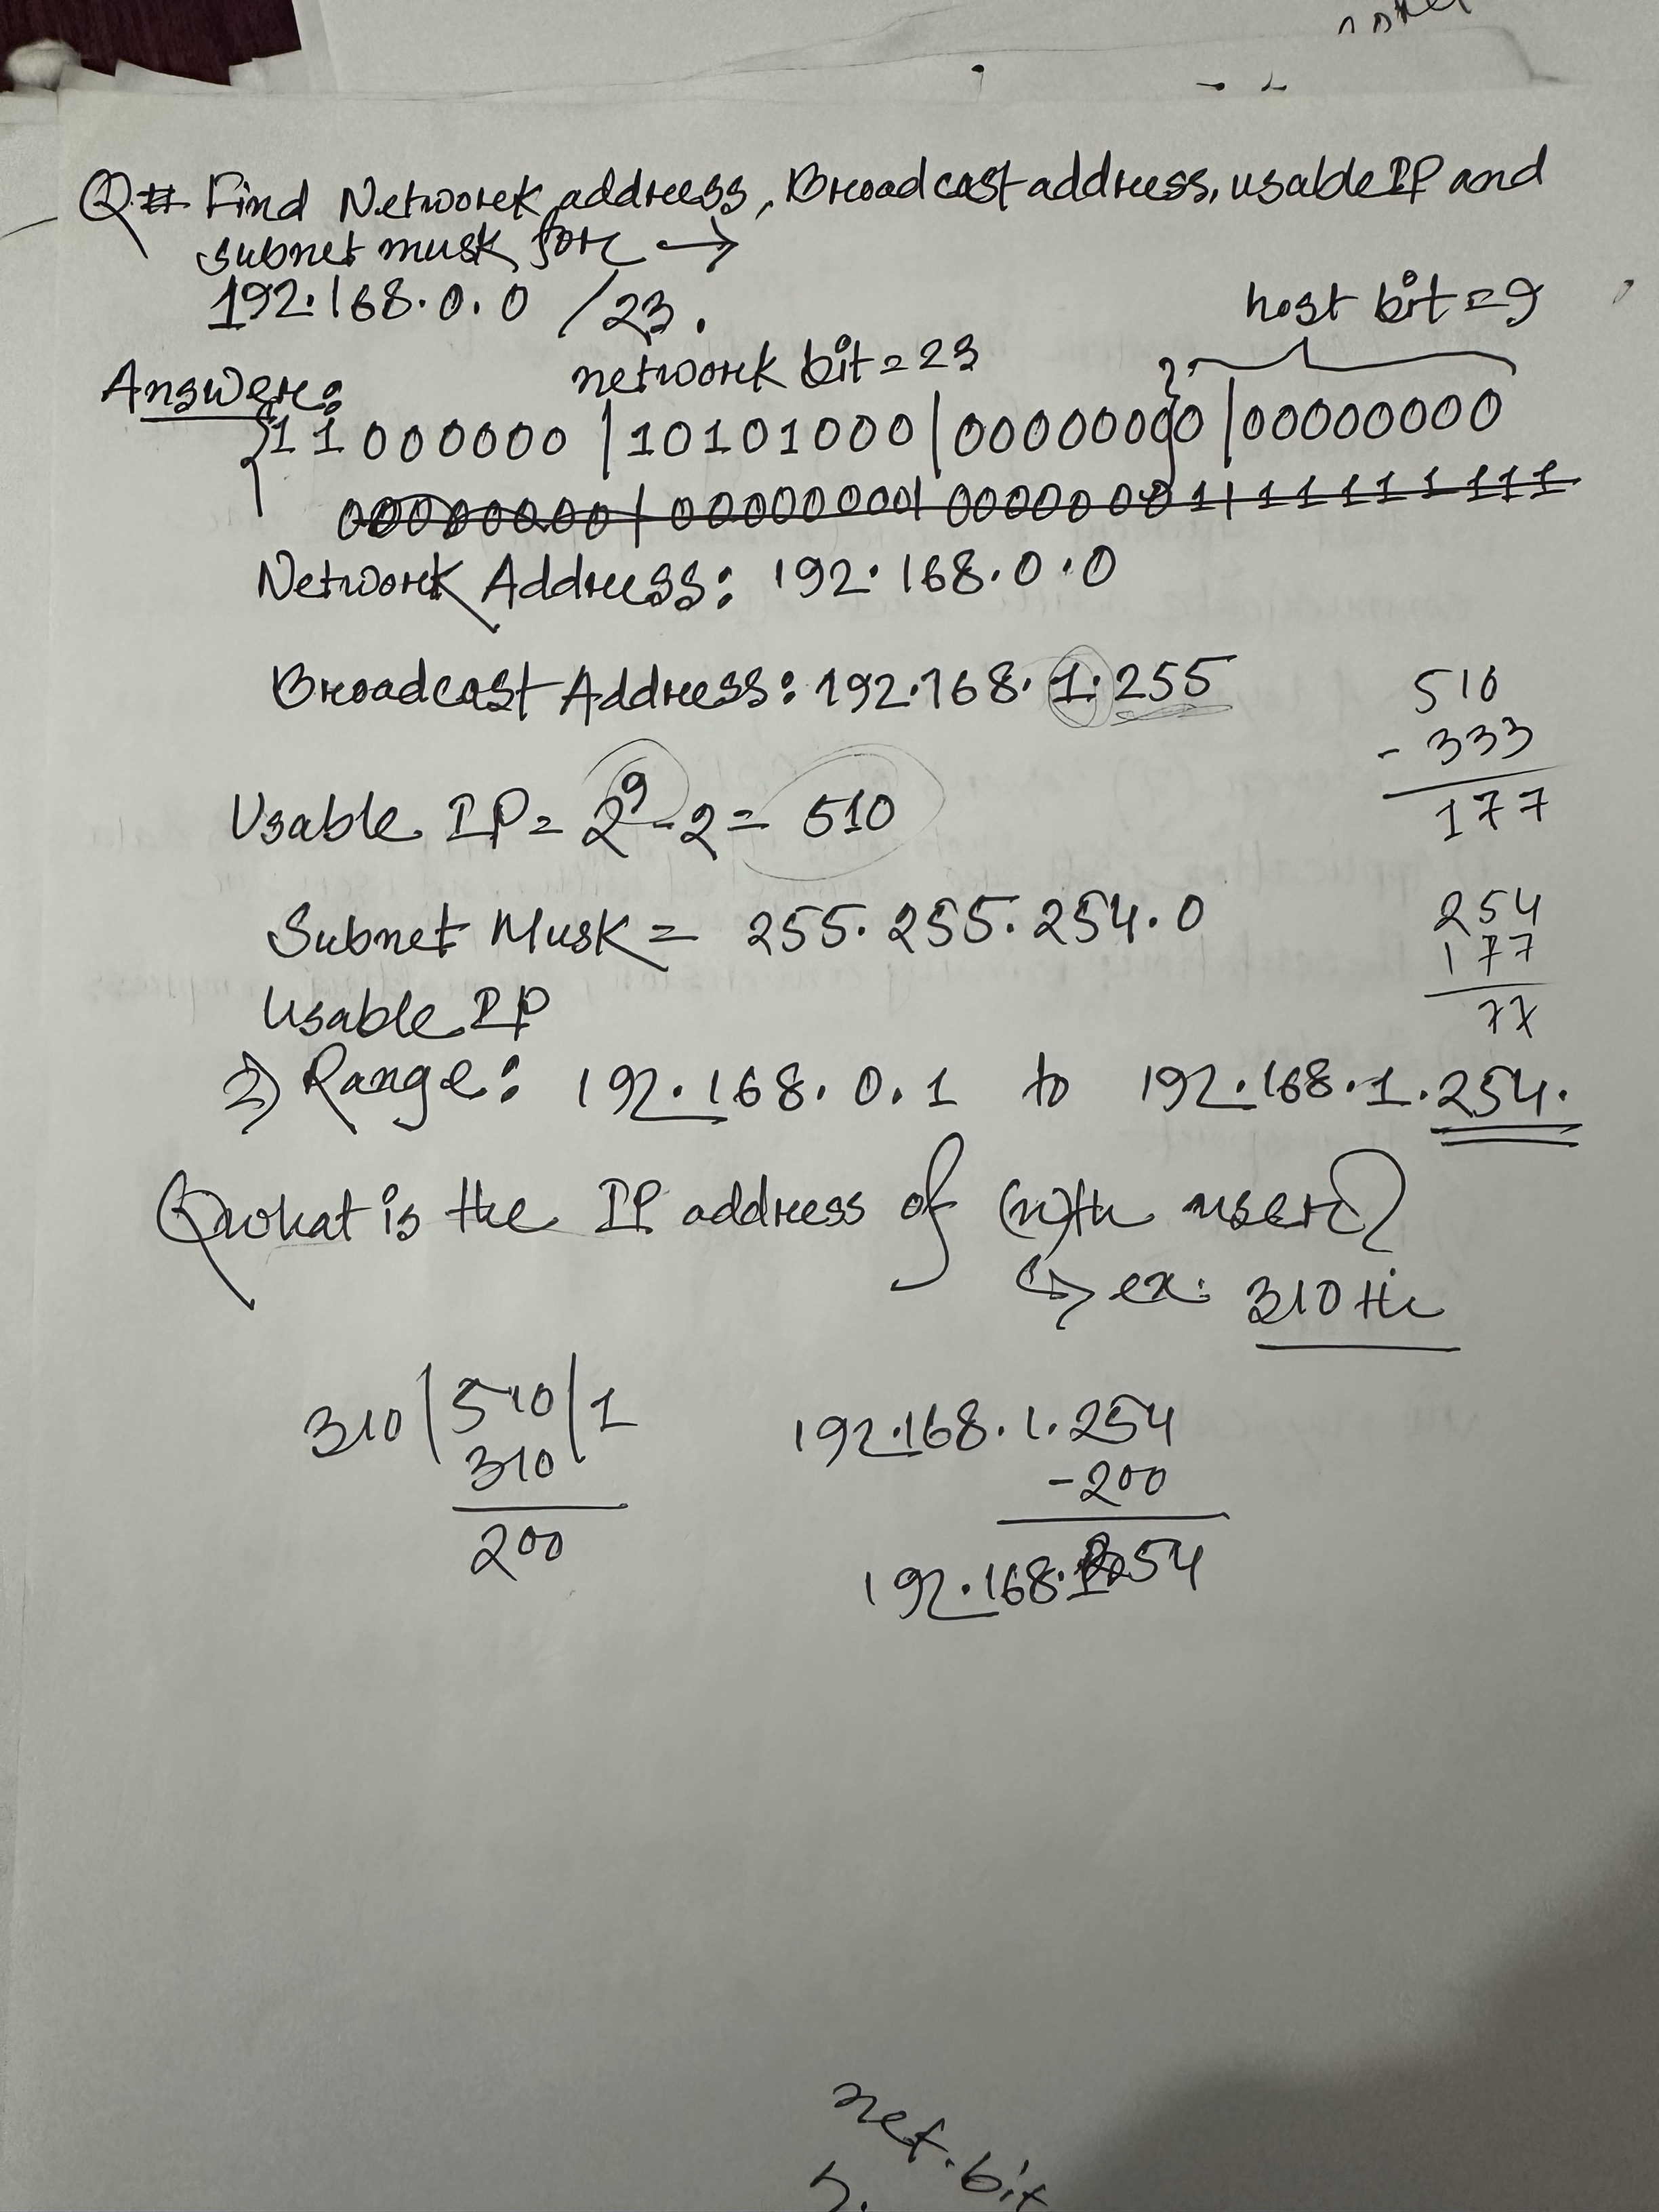 Q# Find Network address, Broadcast address, usable IP and
subnet musk for →
192.168.0.0 /23.
host bit = 9
network bit = 23
Answer:
11000000 | 10101000 | 00000000 | 00000000
00000000 | 00000000 | 00000001 | 11111111
Network Address: 192.168.0.0
Broadcast Address: 192.168.1.255
510
- 333
177
Usable IP = 2⁹ - 2 = 510
Subnet Musk = 255.255.254.0
254
177
77
Usable IP
2) Range: 192.168.0.1 to 192.168.1.254.
Q what is the IP address of (n)th user?
↳ ex: 310th
310 | 510 | 1
310
200
192.168.1.254
-200
192.168. 54
net.bit